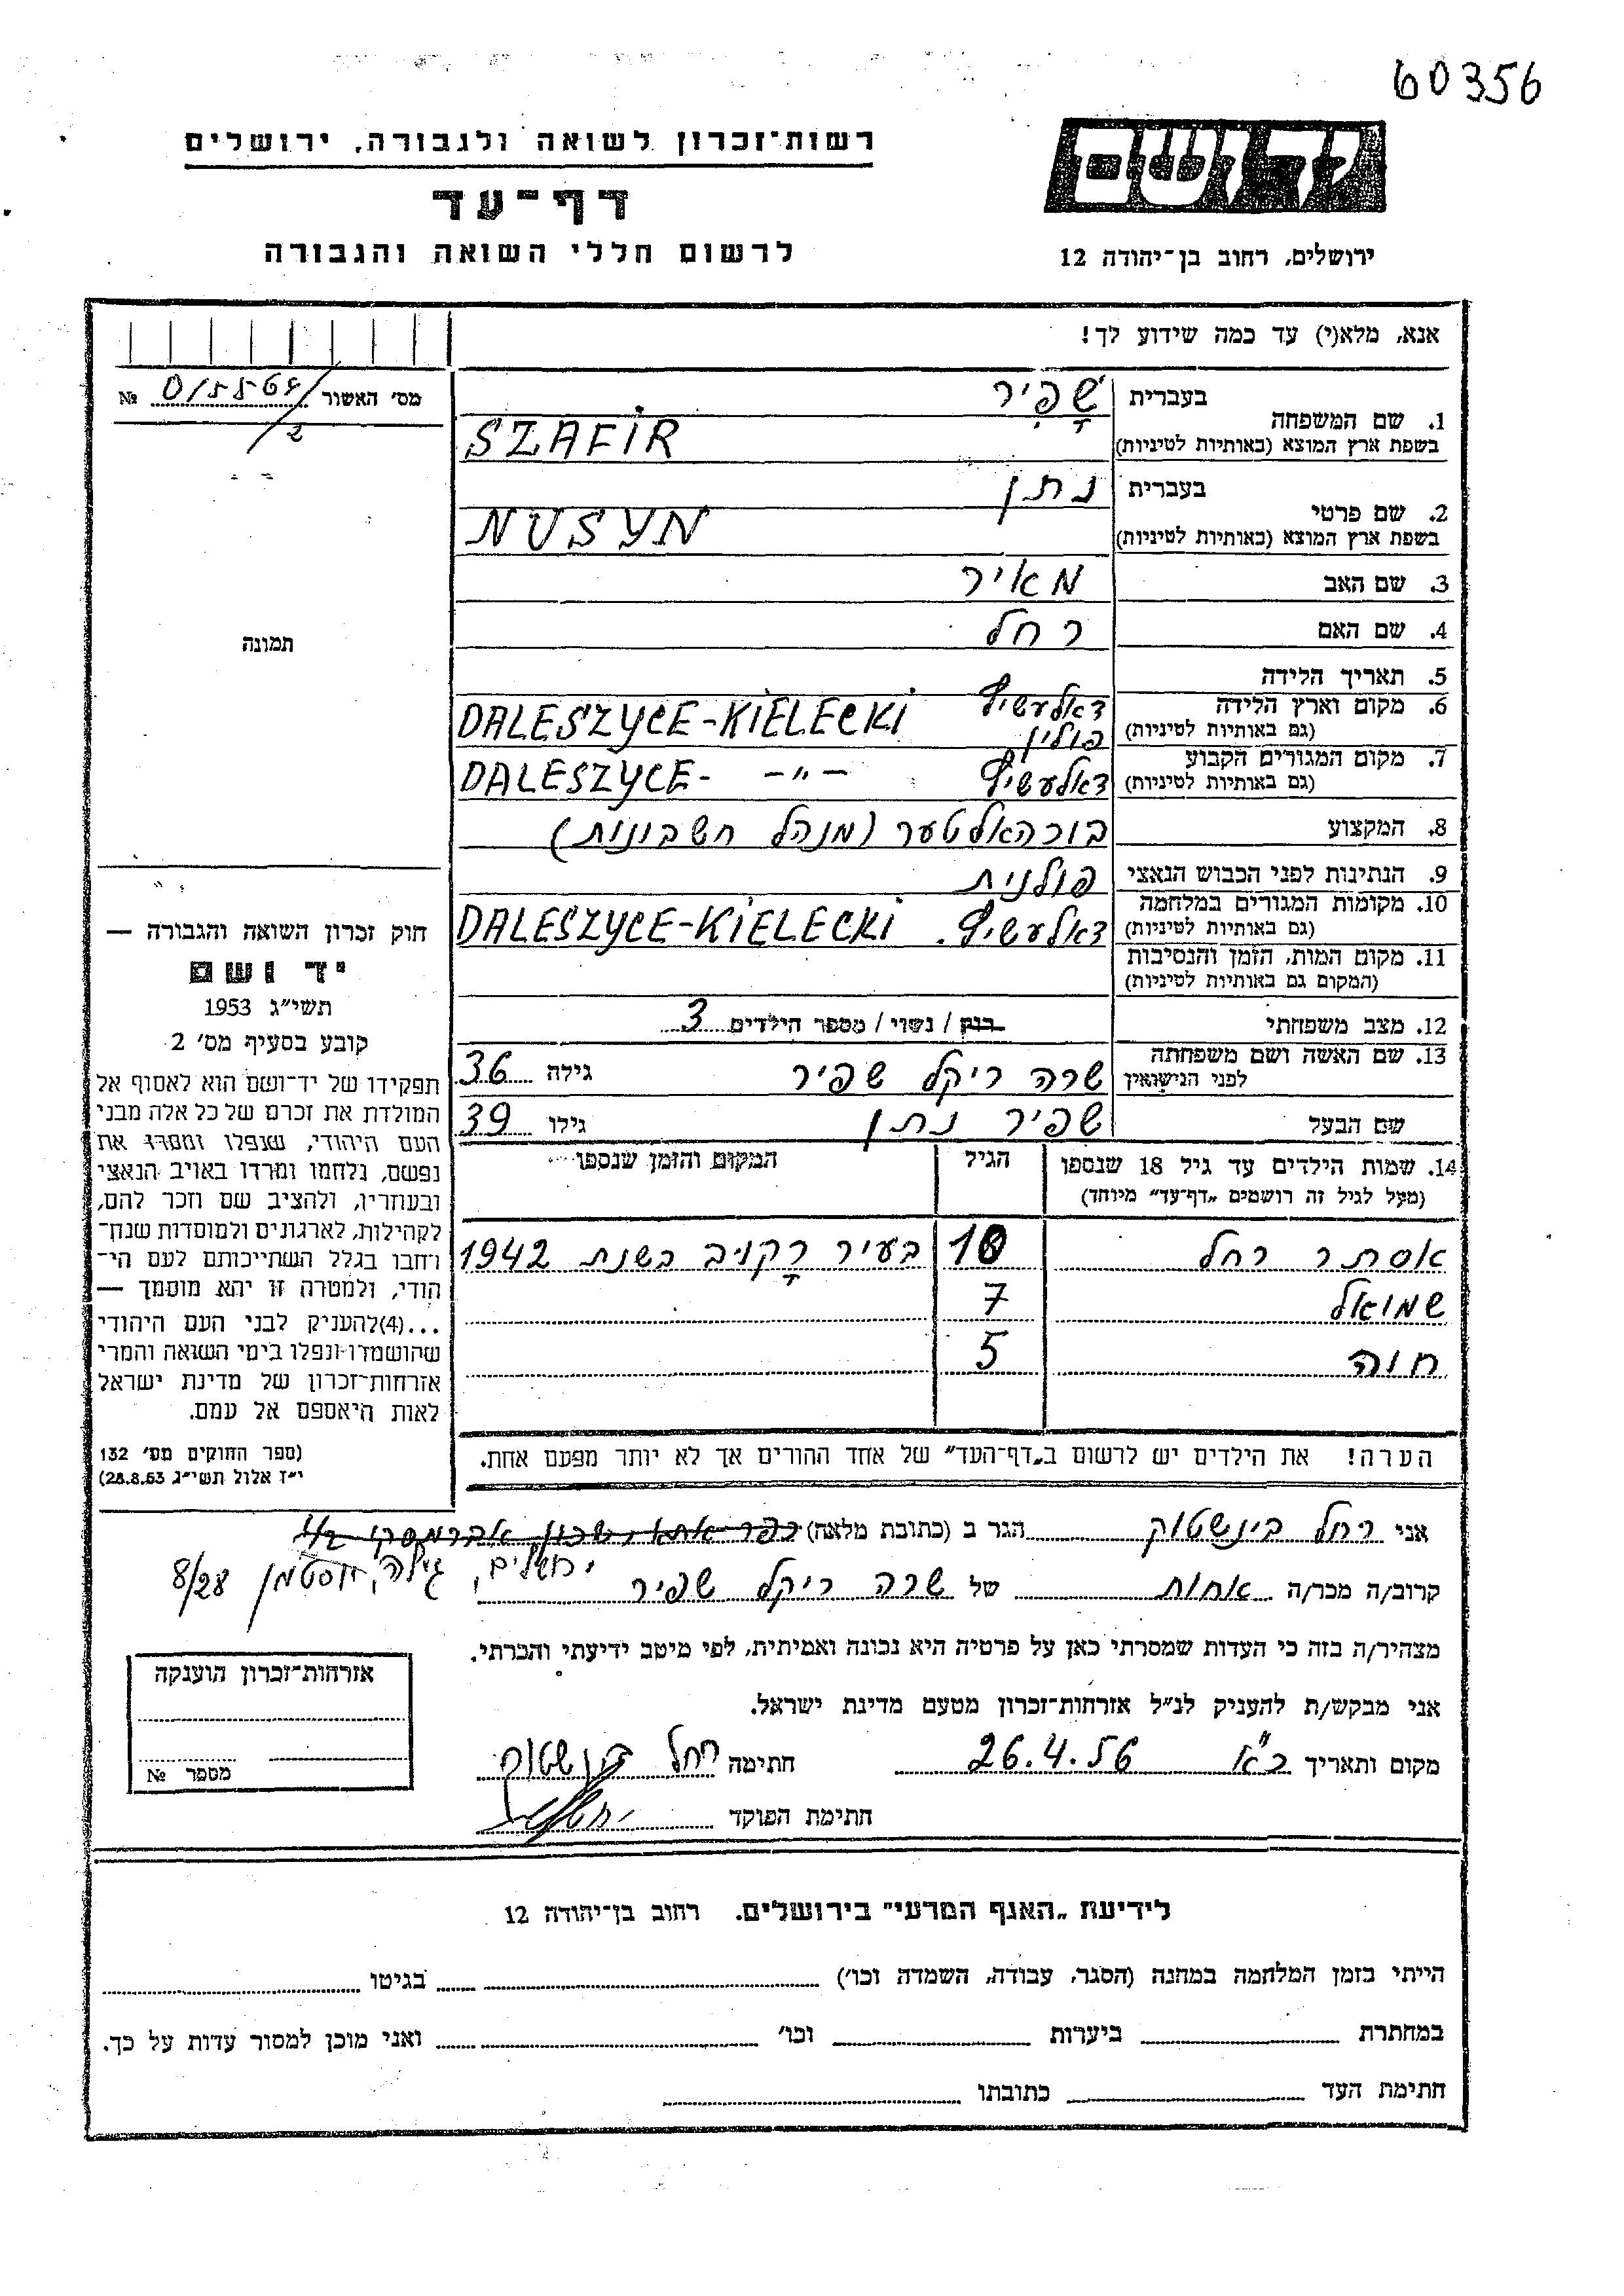 60356
יד ושם
רשות־זכרון לשואה ולגבורה, ירושלים
דף־עד
לרשום חללי השואה והגבורה
ירושלים, רחוב בן־יהודה 12
אנא, מלא(י) עד כמה שידוע לך!
מס' האשור № 015564/2
1. שם המשפחה בעברית שָׁפִיר
בשפת ארץ המוצא (באותיות לטיניות) SZAFIR
2. שם פרטי בעברית נתן
בשפת ארץ המוצא (באותיות לטיניות) NUSYN
3. שם האב מאיר
4. שם האם רחל
תמונה
5. תאריך הלידה
6. מקום וארץ הלידה דאלעשיץ פולין DALESZYCE-KIELECKI
(גם באותיות לטיניות)
7. מקום המגורים הקבוע דאלעשיץ DALESZYCE- -"-
(גם באותיות לטיניות)
8. המקצוע בוכהאלטער (מנהל חשבונות)
9. הנתינות לפני הכבוש הנאצי פולנית
10. מקומות המגורים במלחמה דאלעשיץ. DALESZYCE-KIELECKI
(גם באותיות לטיניות)
11. מקום המות, הזמן והנסיבות
(המקום גם באותיות לטיניות)
12. מצב משפחתי רווק / נשוי / מספר הילדים 3
13. שם האשה ושם משפחתה לפני הנישואין שרה ריקל שפיר גילה 36
שם הבעל שפיר נתן גילו 39
14. שמות הילדים עד גיל 18 שנספו הגיל המקום והזמן שנספו
(מעל לגיל זה רושמים „דף־עד" מיוחד)
אסתר רחל 10 בעיר רָקוב בשנת 1942
שמואל 7
חוה 5
הערה! את הילדים יש לרשום ב„דף־העד" של אחד ההורים אך לא יותר מפעם אחת.
חוק זכרון השואה והגבורה —
יד ושם
תשי"ג 1953
קובע בסעיף מס' 2
תפקידו של יד־ושם הוא לאסוף אל
המולדת את זכרם של כל אלה מבני
העם היהודי, שנפלו ומסרו את
נפשם, נלחמו ומרדו באויב הנאצי
ובעוזריו, ולהציב שם וזכר להם,
לקהילות, לארגונים ולמוסדות שנח־
רחבו בגלל השתייכותם לעם הי־
הודי, ולמטרה זו יהא מוסמך —
...(4)להעניק לבני העם היהודי
שהושמדו ונפלו בימי השואה והמרי
אזרחות־זכרון של מדינת ישראל
לאות היאספם אל עמם.
(ספר החוקים מס' 132
י"ז אלול תשי"ג 28.8.53)
אני רחל בינשטוק הגר ב (כתובת מלאה) כפר אתא, שכון אברמסקי
ירושלים, גילה, 8/28
קרוב/ה מכר/ה אחות של שרה ריקל שפיר
מצהיר/ה בזה כי העדות שמסרתי כאן על פרטיה היא נכונה ואמיתית, לפי מיטב ידיעתי והכרתי.
אני מבקש/ת להעניק לנ"ל אזרחות־זכרון מטעם מדינת ישראל.
מקום ותאריך כ"א 26.4.56 חתימה רחל בינשטוק
חתימת הפוקד
אזרחות־זכרון הוענקה
מספר №
לידיעת „האגף המדעי" בירושלים. רחוב בן־יהודה 12
הייתי בזמן המלחמה במחנה (הסגר, עבודה, השמדה וכו') בגיטו
במחתרת ביערות וכו' ואני מוכן למסור עדות על כך.
חתימת העד כתובתו